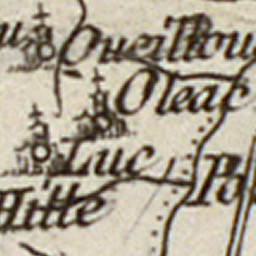 Oueillou
Oleac
Luc
Hitte